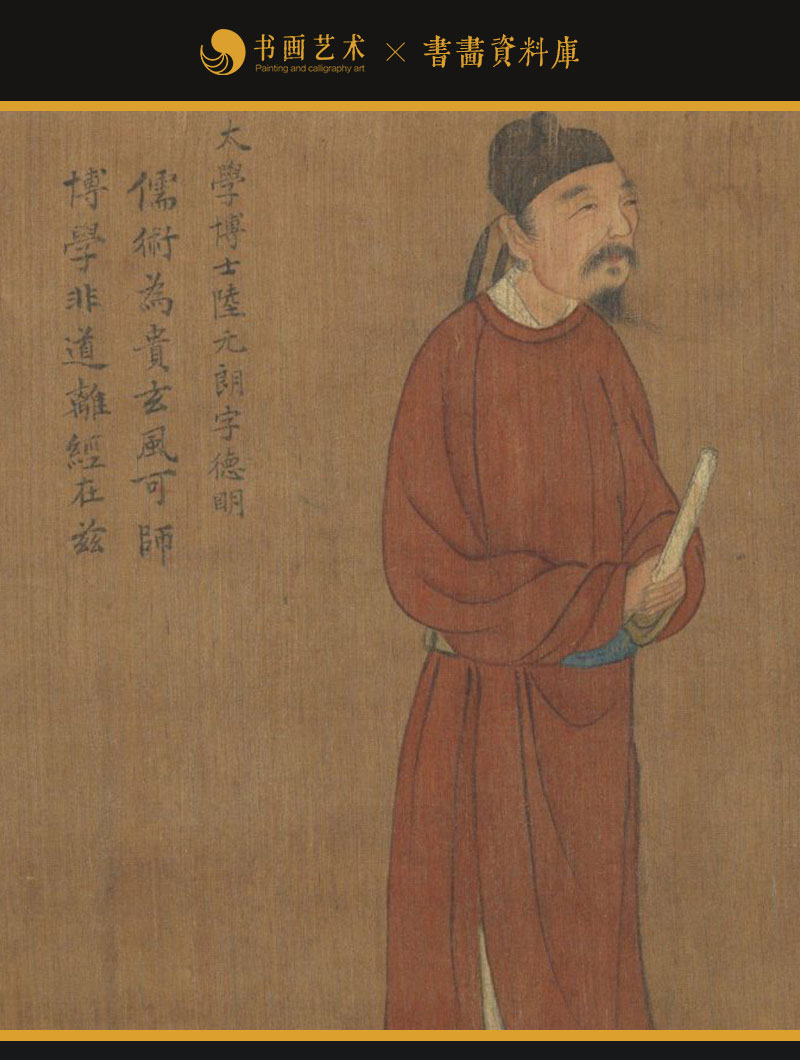 书画艺术
Painting and calligraphy art
×
書畫資料庫
太學博士陸元朗字德明
儒術為貴玄風可師
博學非道離經在兹